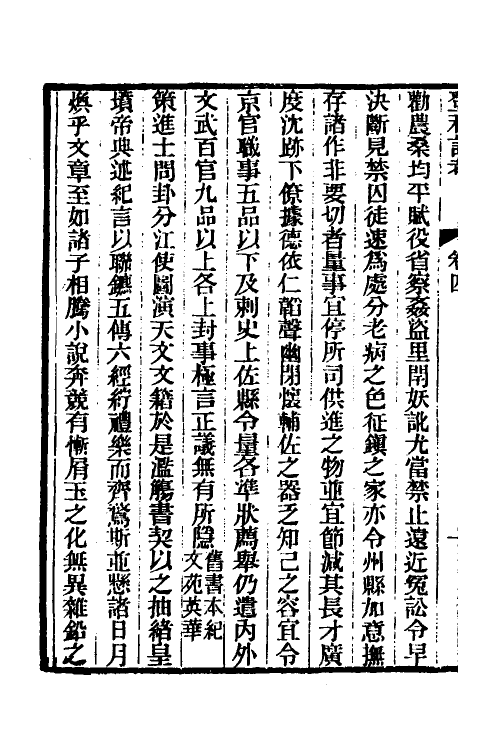 登科記考 卷四
勸農桑均平賦役省察姦盜里閈妖訛尤當禁止遠近冤訟令早
決斷見禁囚徒速為處分老病之色征鎭之家亦令州縣加意撫
存諸作非要切者量事宜停所司供進之物並宜節減其長才廣
度沈跡下僚據德依仁韜聲幽閉懷輔佐之器乏知己之容宜令
京官職事五品以下及刺史上佐縣令量各準狀薦舉仍遣內外
文武百官九品以上各上封事極言正議無有所隱舊書本紀文苑英華
策進士問卦分江使圖演天文文籍於是濫觴書契以之抽緒皇
墳帝典述紀言以聯鑣五傳六經綷禮樂而齊騖斯並懸諸日月
煥乎文章至如諸子相騰小說奔競有慚屑玉之化無異雜鉛之